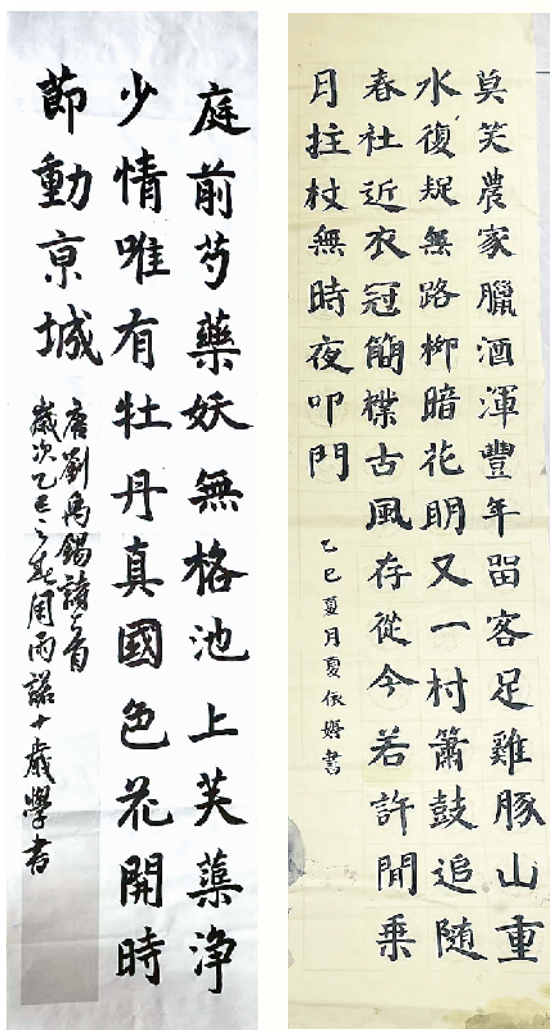 庭前芍藥妖無格池上芙蕖浄
少情唯有牡丹真國色花開時
節動京城
唐劉禹錫詩一首
歲次乙巳之春周雨諾十歲學書
莫笑農家臘酒渾豐年留客足雞豚山重
水復疑無路柳暗花明又一村簫鼓追隨
春社近衣冠簡樸古風存從今若許閒乘
月拄杖無時夜叩門
乙巳夏月夏依書